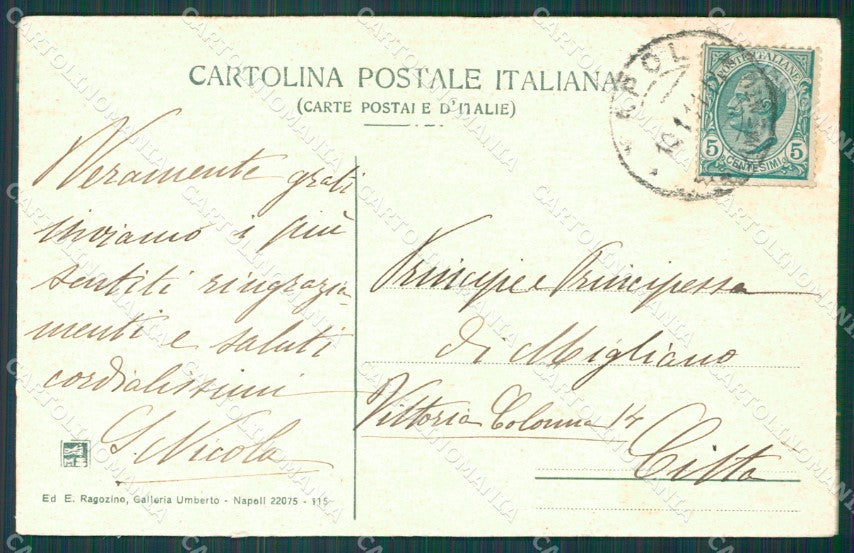 CARTOLINA POSTALE ITALIANA
(CARTE POSTALE D'ITALIE)
Veramente grati
inviamo i più
sentiti ringrazia
menti e saluti
cordialissimi
S. Nicola
Ed E. Ragozino, Galleria Umberto - Napoli 22075 - 115
NAPOLI
POSTE ITALIANE
5 CENTESIMI 5
Principe e Principessa
di Migliano
Vittoria Colonna 14
Città
CARTOLINOMANIA